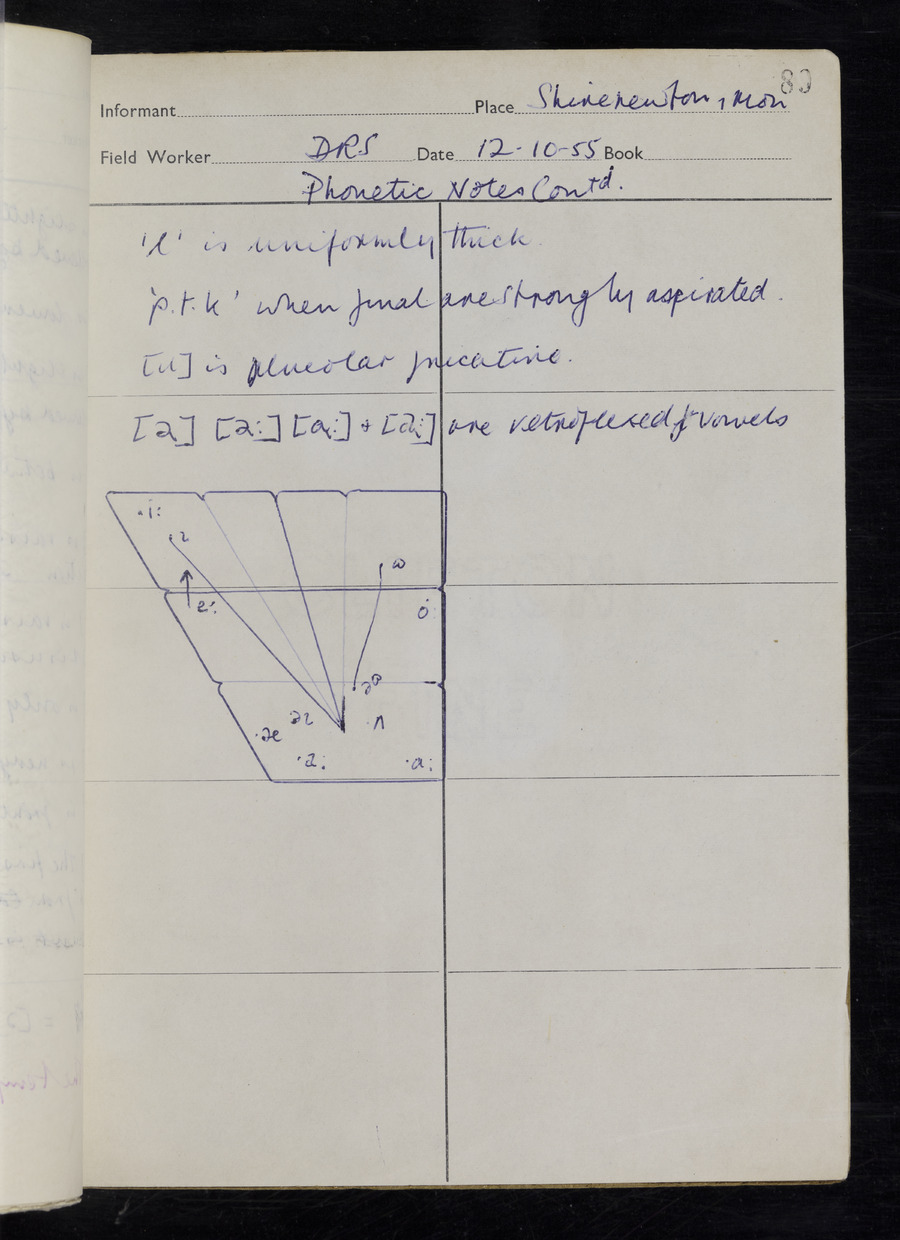 80
Informant Place Shirenewton, Mon
Field Worker DRS Date 12-10-55 Book
Phonetic Notes Contd.
'l' is uniformly thick.
'p.t.k' when final are strongly aspirated.
is alveolar fricative.
are retroflexed vowels
i:
ɩ
ω
e:
o:
əω
əɩ
ʌ
æ
a:
ɑ: